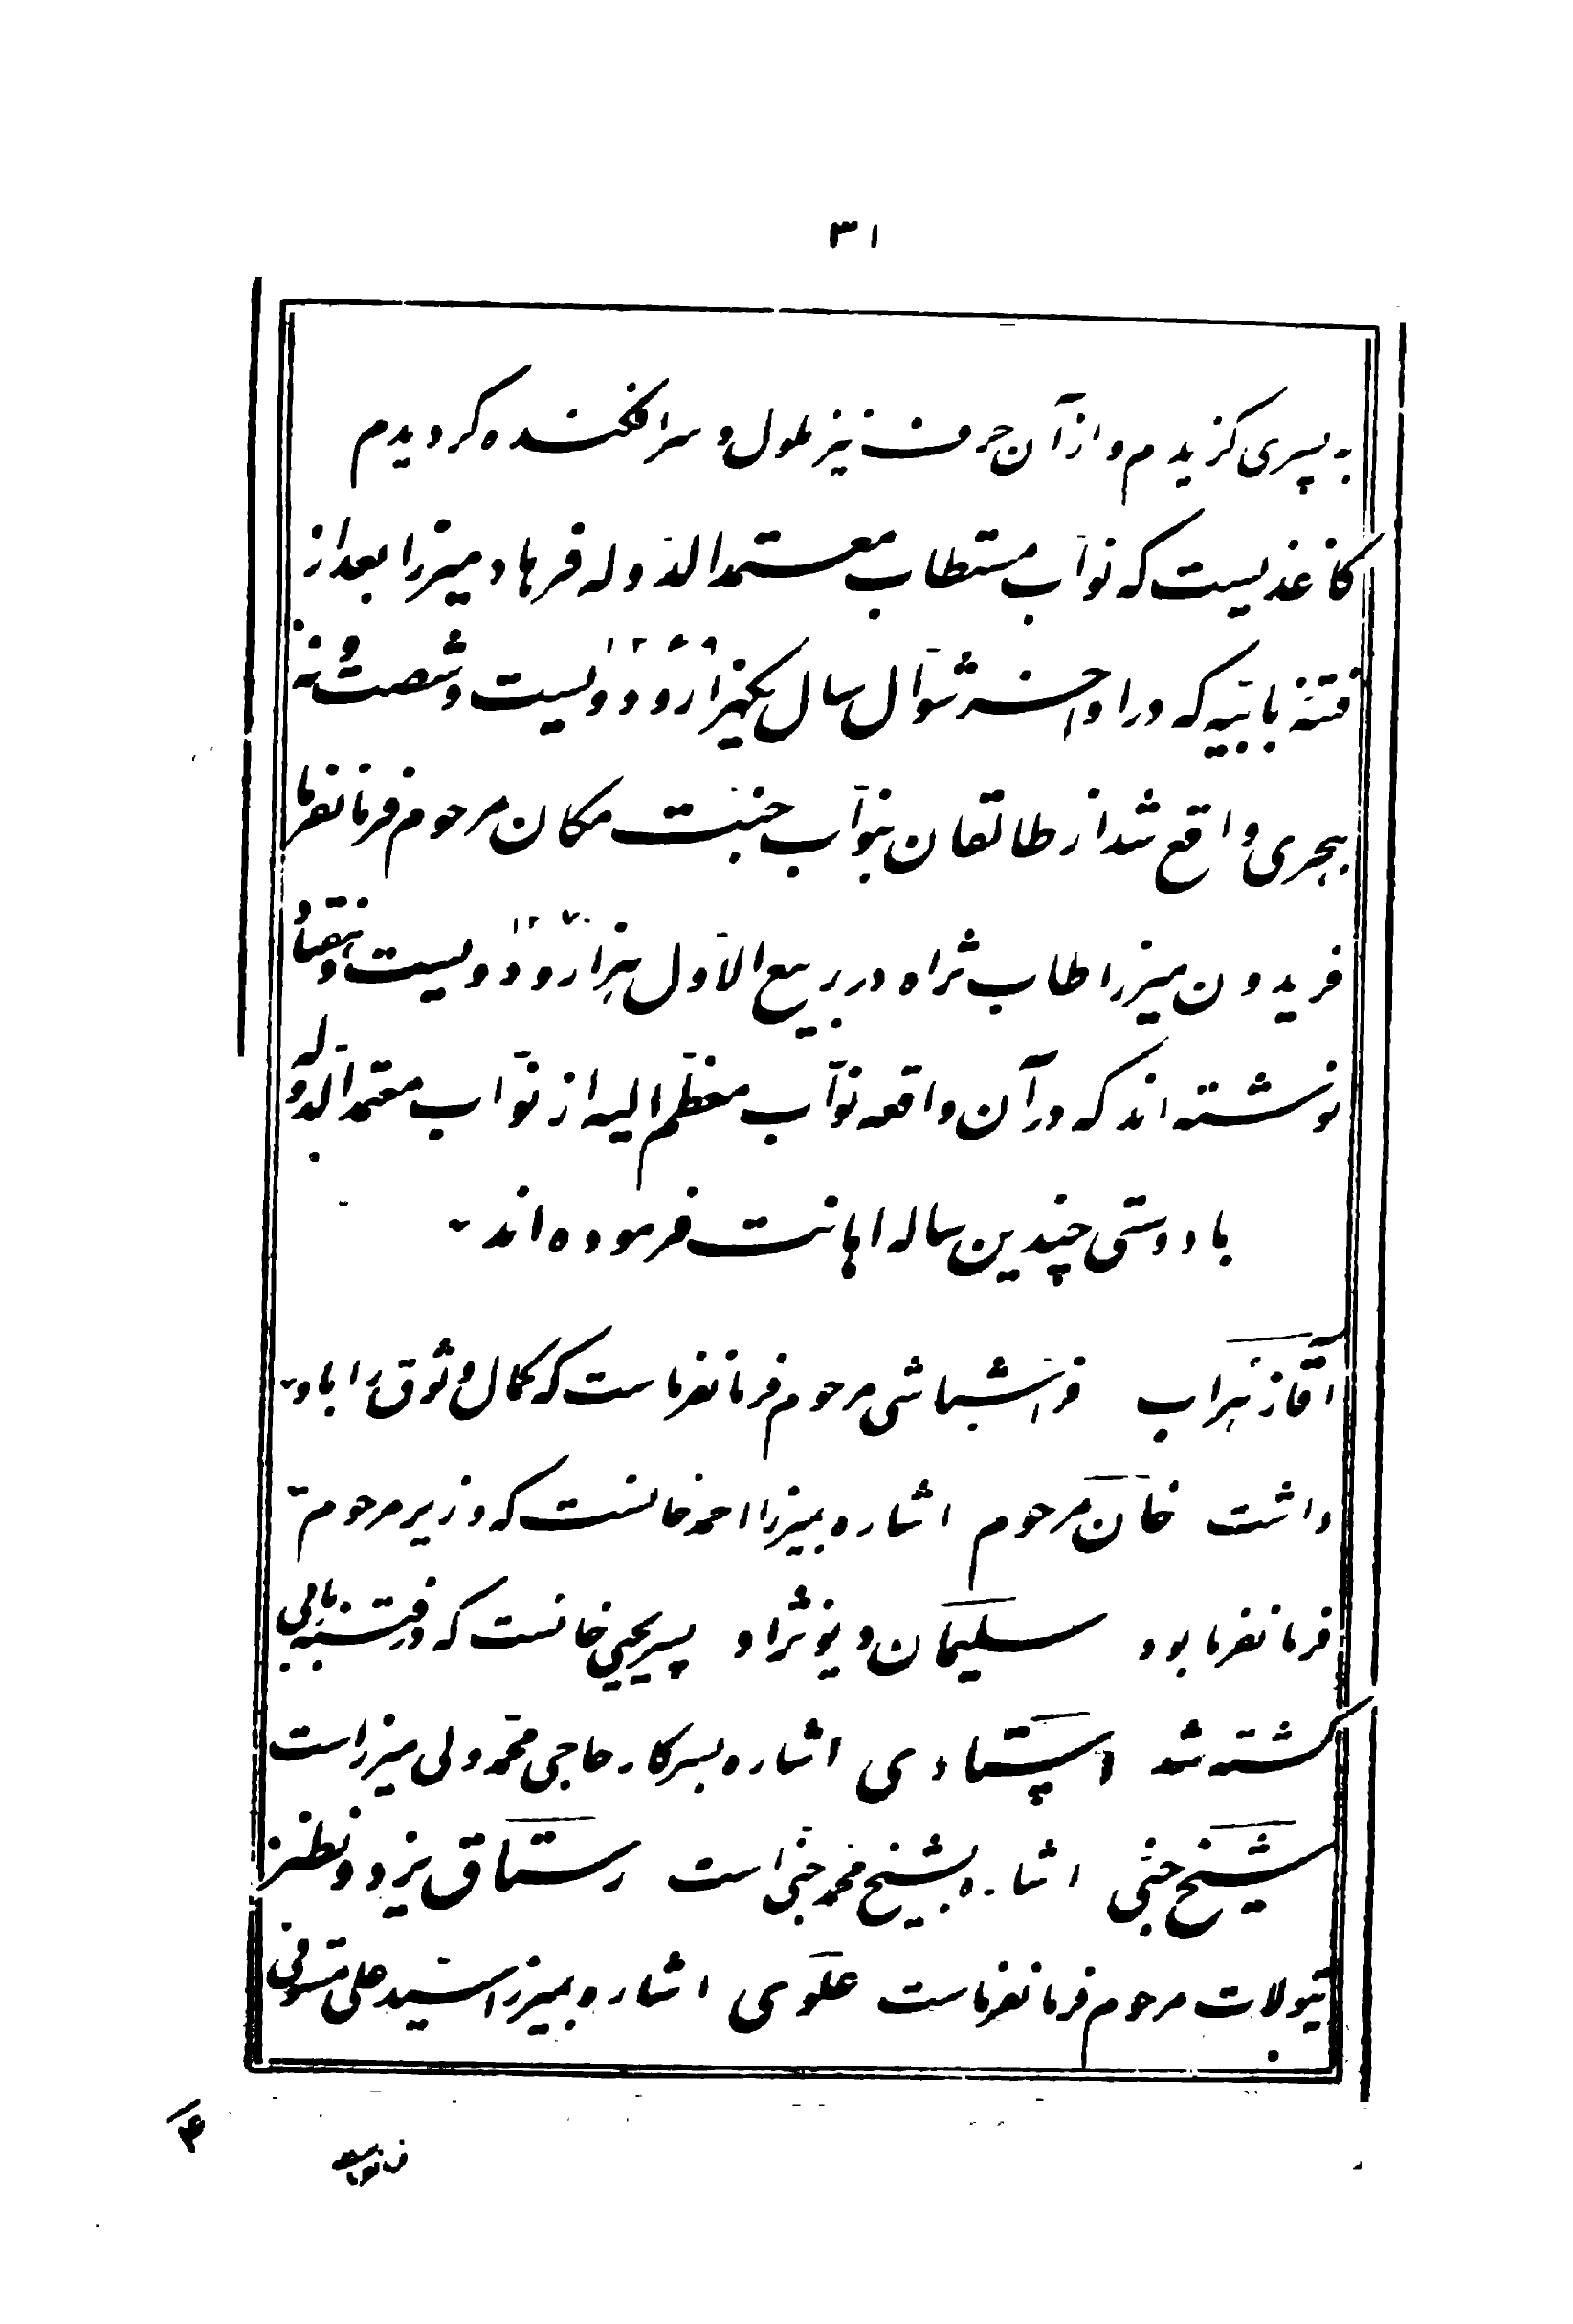 ۳۱
به پسری گزیدم و از آن حرف نیز ملول و سرافکنده گردیدم
کاغذیست که نوّاب مستطاب معتمد الدّوله فرهاد میرزا بعد از
فتنهٔ بابیّه که در اواخر شوّال سال یکهزار و دویست و شصت و نه ۱۲۶۹
هجری واقع شد از طالقان بنوّاب جنّت مکان مرحوم فرمانفرما
فریدون میرزا طاب ثراه در ربیع الاوّل هزار و دویست و هفتاد ۱۲۷۰
نوشته‌اند که در آن واقعه نوّاب معظّم الیه از نوّاب معتمد الدّوله
با دوستی چندین ساله اهانت فرموده‌اند
آقا زهراب فرّاشباشی مرحوم فرمانفرماست که کمال وثوق را باو
داشت خان مرحوم اشاره بمیرزا احمد خانست که وزیر مرحوم
فرمانفرما بود سلیمان دیونژاد پسر یحیی خانست که در فتنهٔ بابی
کشته شد استادی اشاره بسرکار حاجی محمّد ولی میرزاست
شیخ جنّی اشاره بشیخ محمد جنّی است رستاق یزد و نطنز
تیولات مرحوم فرمانفرماست علوی اشاره بمیرزا سیّد علی مستوفی